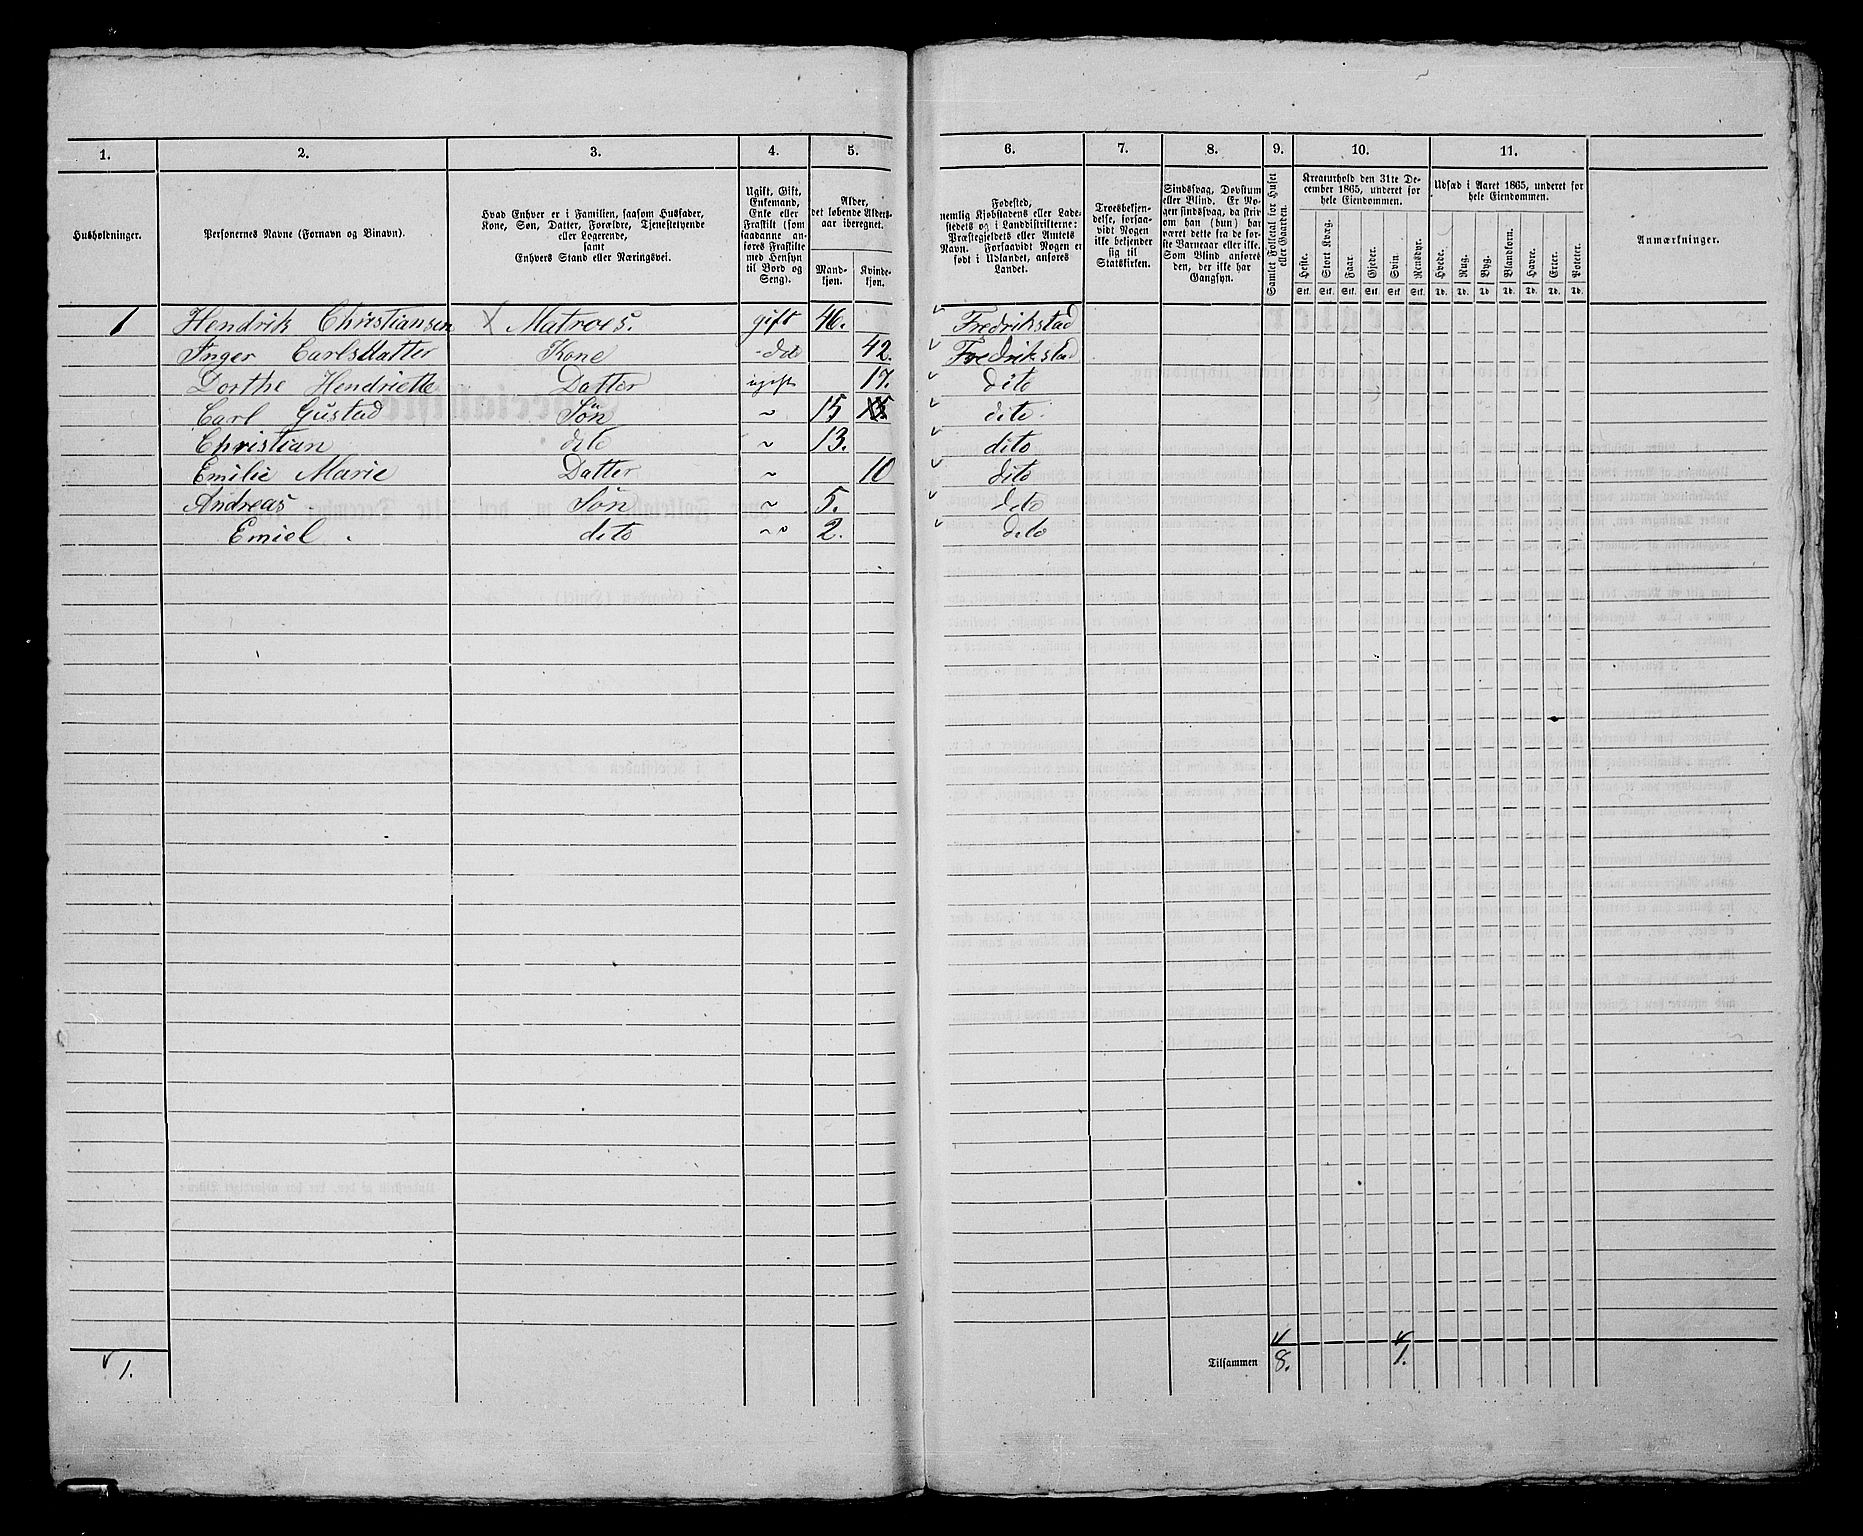 1. 2. 3. 4. 5. 6. 7. 8. 9. 10. 11.
Husholdninger.
Personernes Navne (Fornavn og Binavn).
Hvad Enhver er i Familien, saasom Husfader,
Kone, Søn, Datter, Forældre, Tjenestetyende
eller Logerende,
samt
Enhvers Stand eller Næringsvei.
Ugift, Gift,
Enkemand,
Enke eller
Fraskilt (som
saadanne an-
føres Fraskilte
med Hensyn
til Bord og
Seng).
Alder,
det løbende Alders-
aar iberegnet.
Mand-
kjøn.
Kvinde-
kjøn.
Fødested,
nemlig Kjøbstadens eller Lade-
stedets og i Landdistrikterne:
Præstegjeldets eller Amtets
Navn. Forsaavidt Nogen er
født i Udlandet, anføres
Landet.
Troesbekjen-
delse, forsaa-
vidt Nogen
ikke bekjender
sig til
Statskirken.
Sindssvag, Døvstum
eller Blind. Er No-
gen sindssvag, da skriv
om han (hun) har
været dette fra de før-
ste Barneaar eller ikke.
Som Blind anføres
den, der ikke har
Gangsyn.
Samlet Folketal for Huset
eller Gaarden.
Kreaturhold den 31te De-
cember 1865, underet for
hele Eiendommen.
Heste. Stort Kvæg. Faar. Gjeder. Svin. Rensdyr.
Stk. Stk. Stk. Stk. Stk. Stk.
Udsæd i Aaret 1865, underet for
hele Eiendommen.
Hvede. Rug. Byg. Blandkorn. Havre. Erter. Poteter.
Td. Td. Td. Td. Td. Td. Td.
Anmærkninger.
1 Hendrik Christiansen X Matroes. gift 46. Fredrikstad
Inger Carlsdatter Kone dito 42. Fredrikstad
Dorthe Hendriette Datter ugift 17. dito
Carl Gustad Søn ~ 15 15 dito
Christian dito ~ 13. dito
Emilie Marie Datter ~ 10 dito
Andreas Søn ~ 5. dito
Emiel dito ~ 2. dito
1. Tilsammen 8. 1.